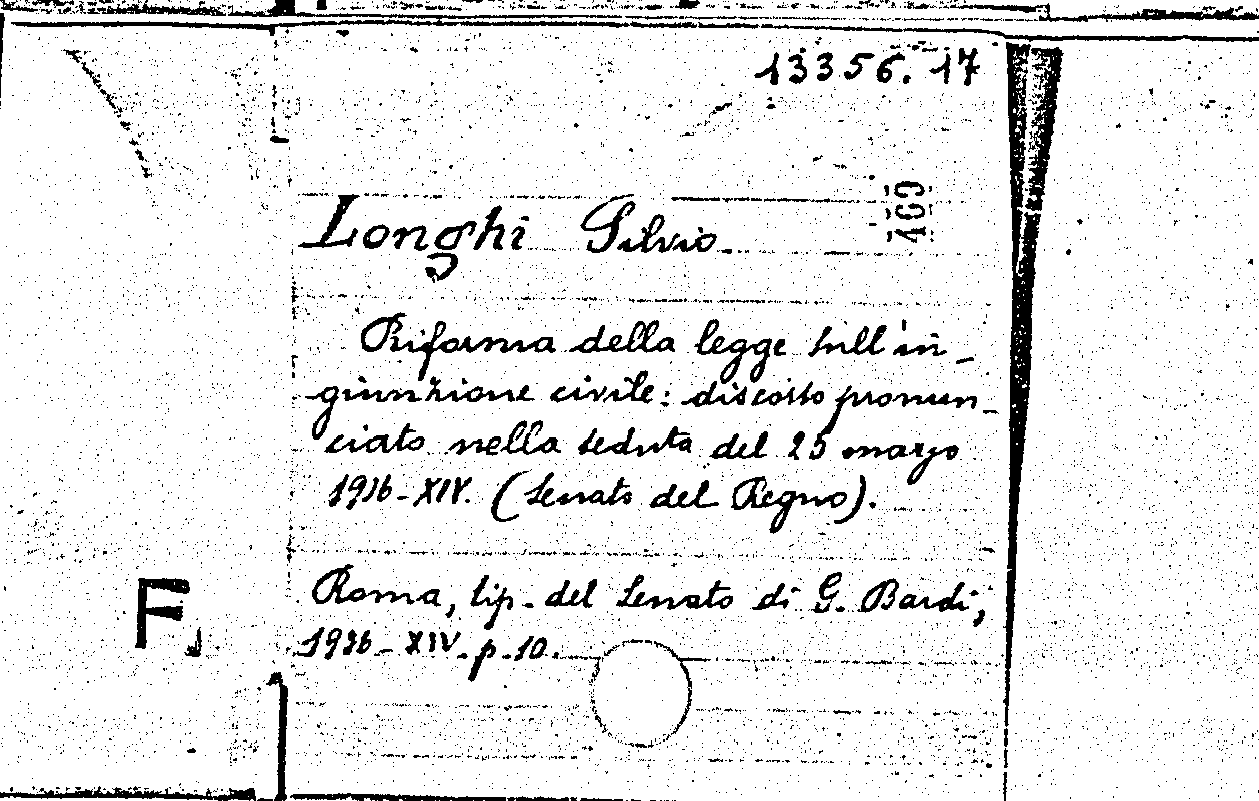 13356. 17
469
Longhi Silvio.
Riforma della legge sull'in-
giunzione civile: discorso pronun-
ciato nella seduta del 25 marzo
1936-XIV. (Senato del Regno).
Roma, tip. del Senato di G. Bardi,
1936-XIV. p. 10.
F.